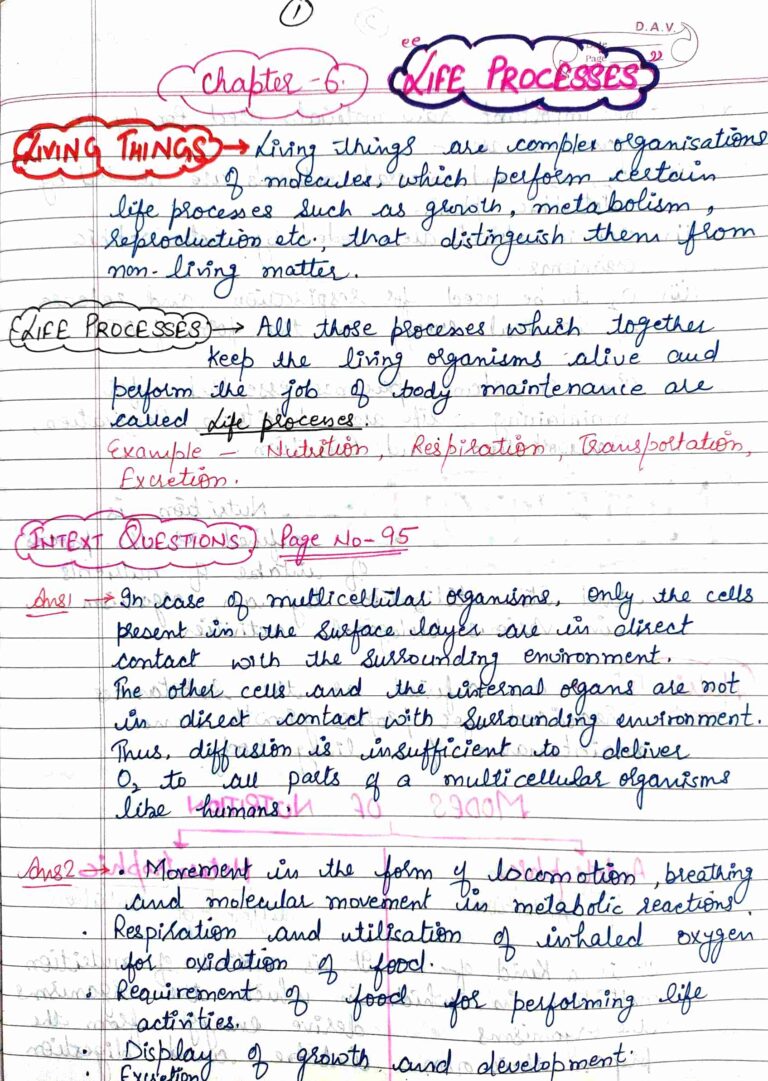 1
D.A.V.
Page
Chapter - 6.
"LIFE PROCESSES"
LIVING THINGS → Living things are complex organisations
of molecules, which perform certain
life processes such as growth, metabolism,
reproduction etc., that distinguish them from
non-living matter.
LIFE PROCESSES → All those processes which together
keep the living organisms alive and
perform the job of body maintenance are
called Life processes.
Example - Nutrition, Respiration, Transportation,
Excretion.
INTEXT QUESTIONS Page No-95
Ans1 → In case of multicellular organisms, only the cells
present in the surface layer are in direct
contact with the surrounding environment.
The other cells and the internal organs are not
in direct contact with surrounding environment.
Thus, diffusion is insufficient to deliver
O2 to all parts of a multicellular organisms
like humans.
MODES OF NUTRITION
Ans2 → • Movement in the form of locomotion, breathing
and molecular movement in metabolic reactions
• Respiration and utilisation of inhaled oxygen
for oxidation of food.
• Requirement of food for performing life
activities.
• Display of growth and development.
• Excretion